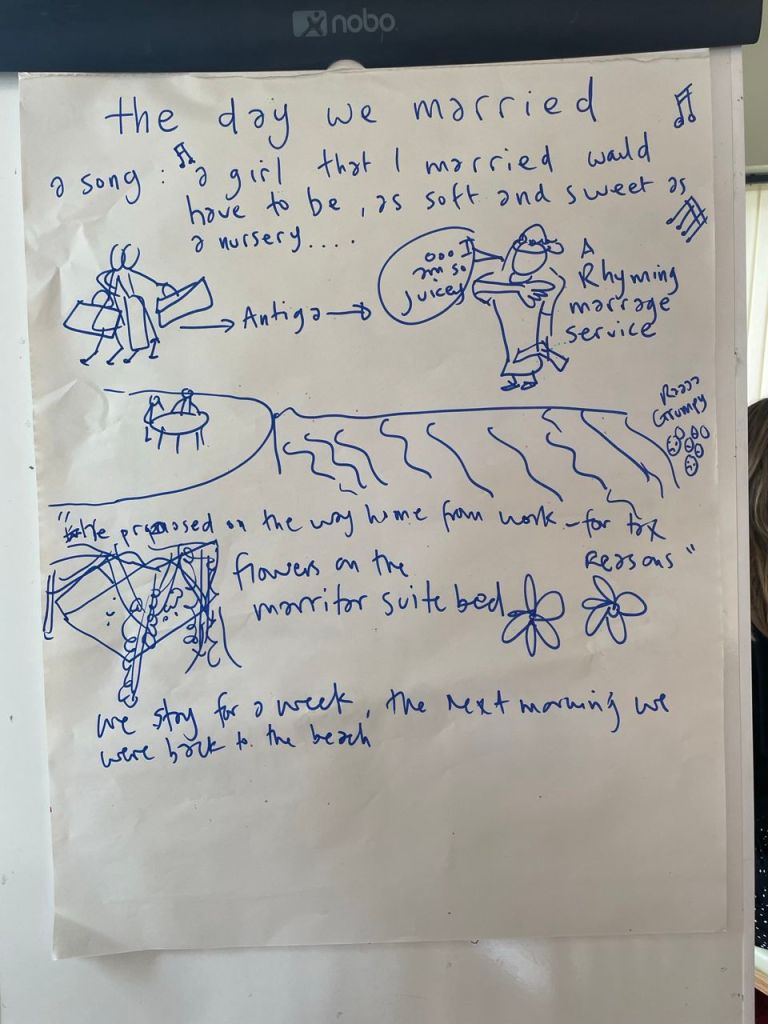 nobo
the day we married
a song : a girl that I married would
have to be, as soft and sweet as
a nursery....
Antiga
ooo I
am so
juicey
A
Rhyming
marrage
service
Raaa
Grumpy
"He proposed on the way home from work - for tax
Reasons"
flowers on the
marritar suite bed
we stay for a week, the next morning we
were back to the beach